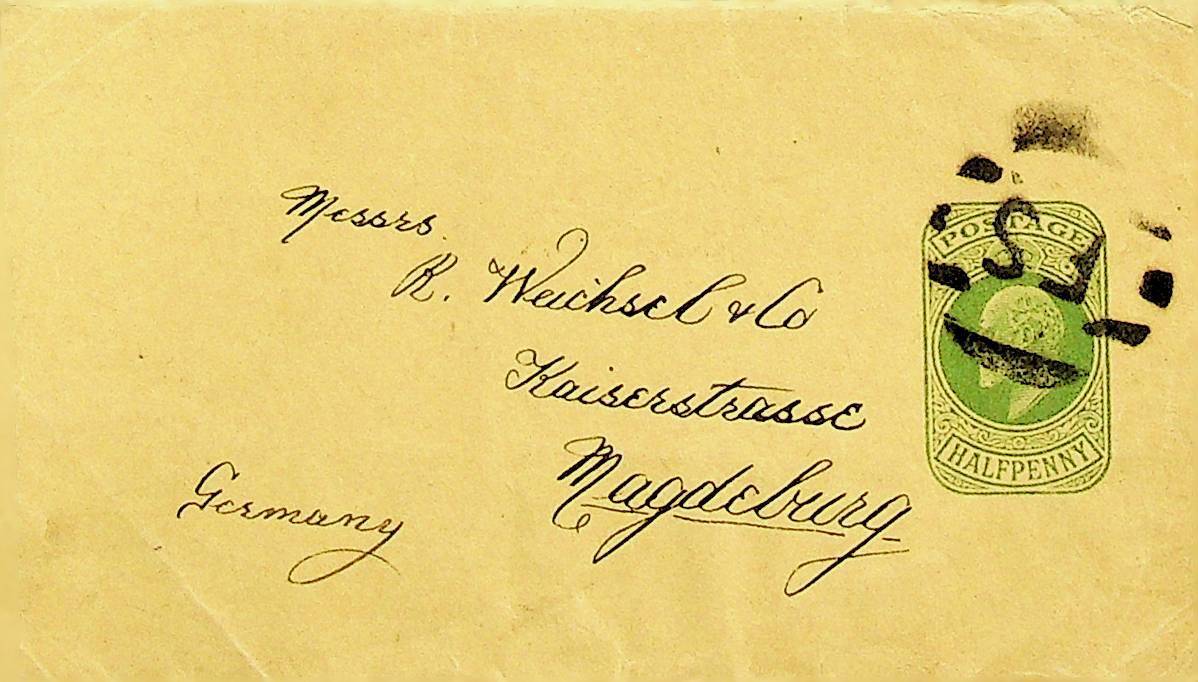 Messrs.
R. Weichsel & Co
Kaiserstrasse
Magdeburg
Germany
POSTAGE
HALFPENNY